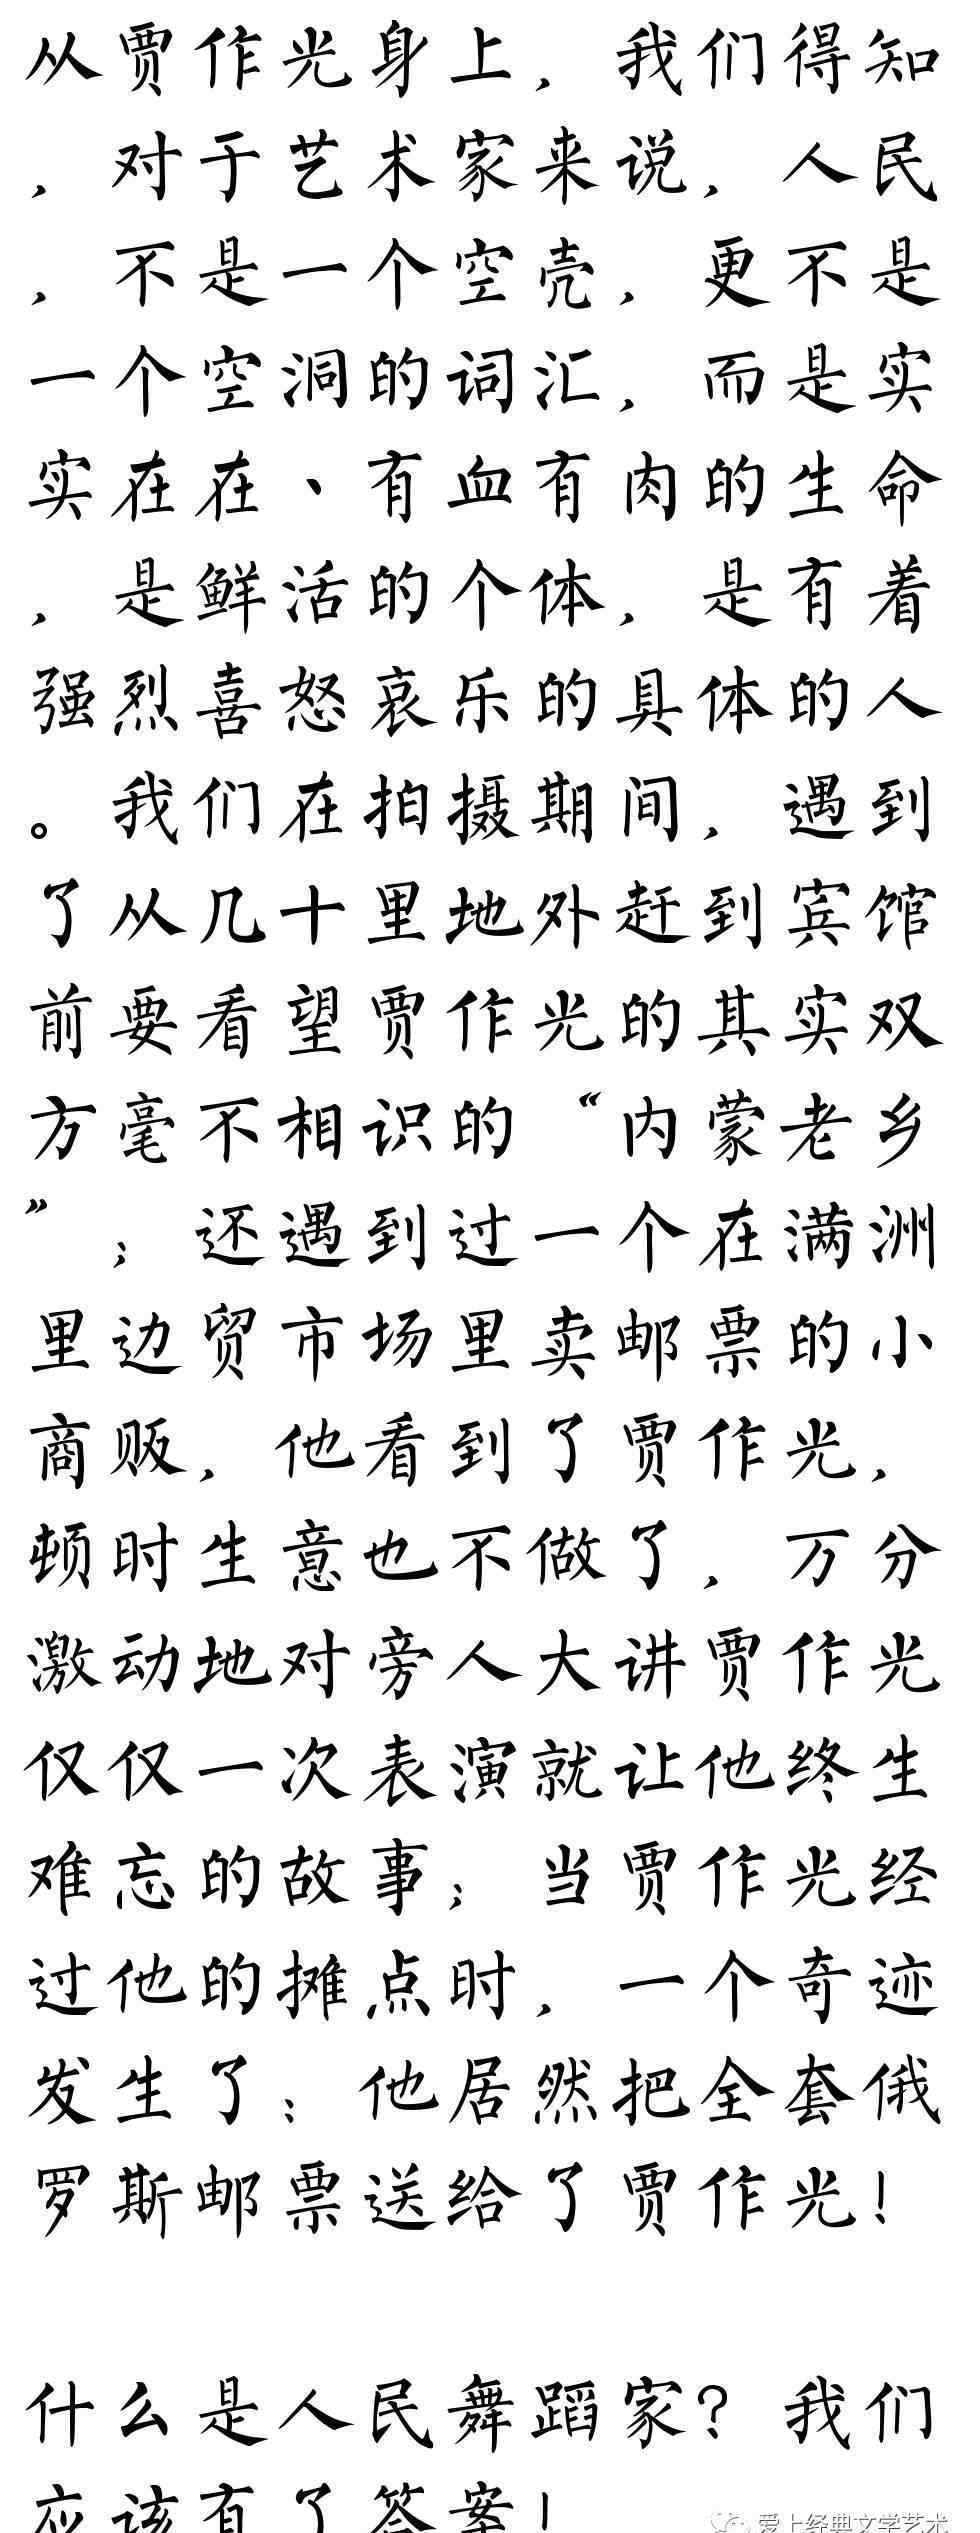 从贾作光身上，我们得知
，对于艺术家来说，人民
，不是一个空壳，更不是
一个空洞的词汇，而是实
实在在、有血有肉的生命
，是鲜活的个体，是有着
强烈喜怒哀乐的具体的人
。我们在拍摄期间，遇到
了从几十里地外赶到宾馆
前要看望贾作光的其实双
方毫不相识的“内蒙老乡
”；还遇到过一个在满洲
里边贸市场里卖邮票的小
商贩，他看到了贾作光，
顿时生意也不做了，万分
激动地对旁人大讲贾作光
仅仅一次表演就让他终生
难忘的故事；当贾作光经
过他的摊点时，一个奇迹
发生了：他居然把全套俄
罗斯邮票送给了贾作光！
什么是人民舞蹈家？我们
应该有了答案！
爱上经典文学艺术